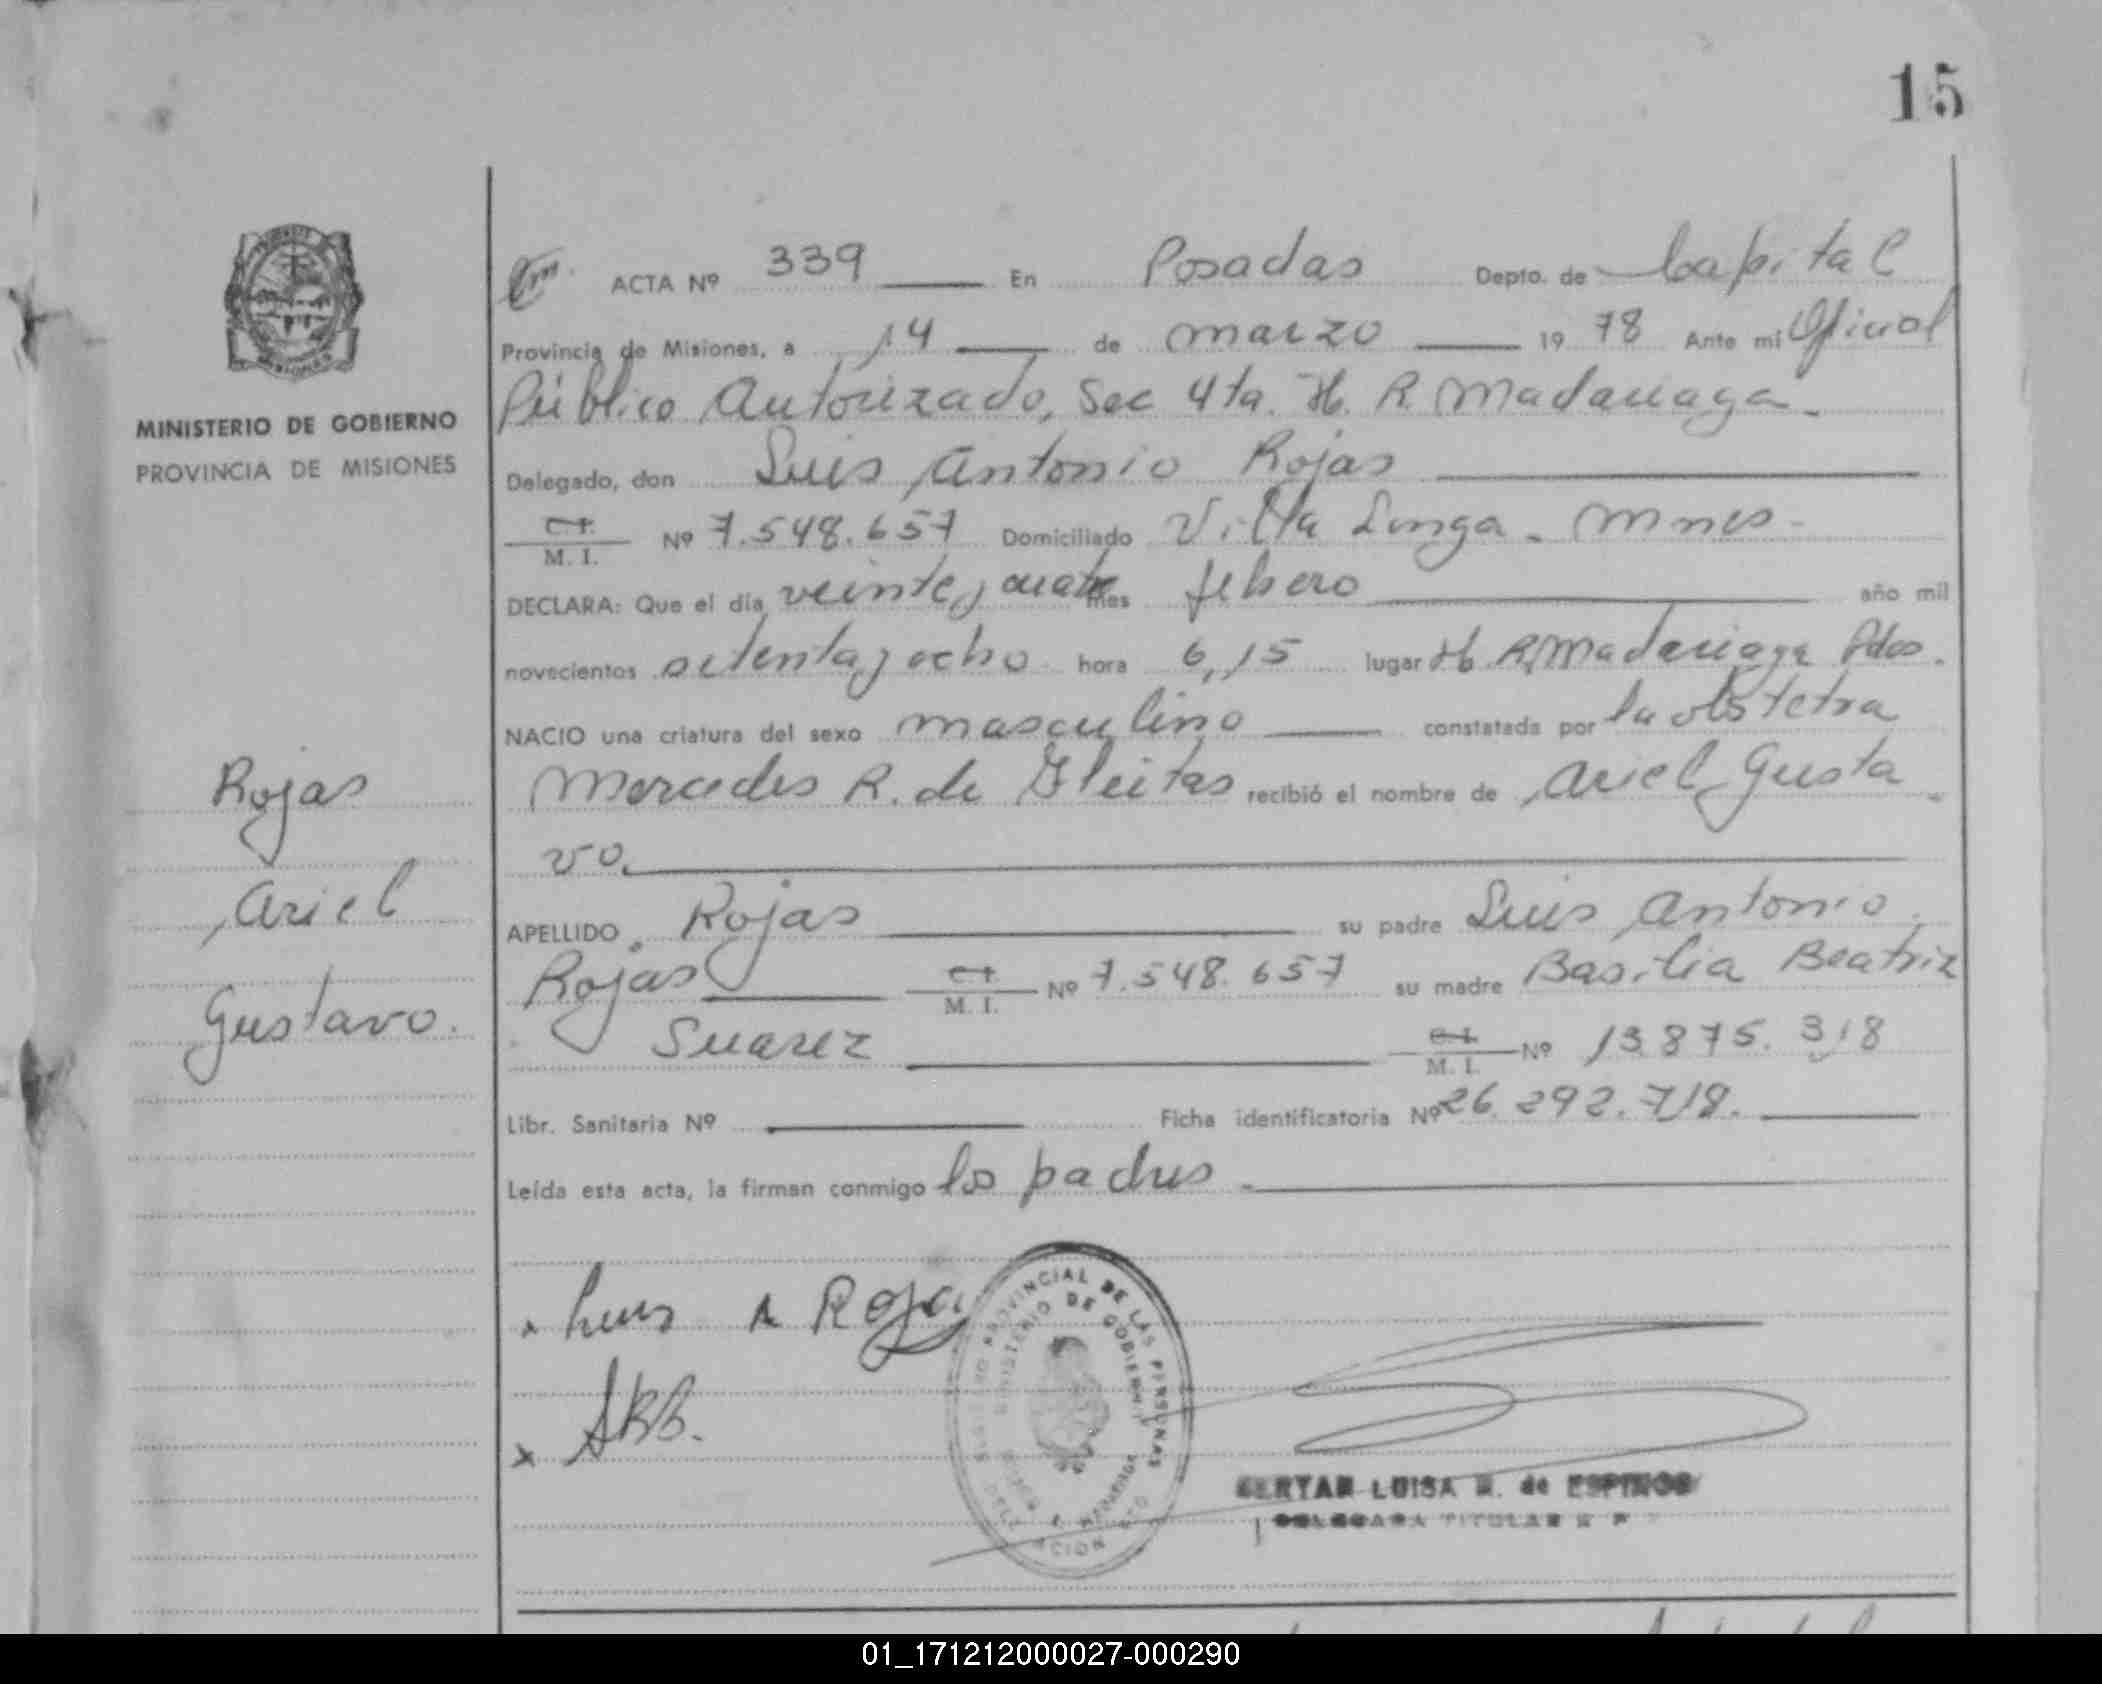 15
ACTA Nº 339 En Posadas Depto. de Capital
Provincia de Misiones, a 14 de marzo 19 78 Ante mi Oficial
Público Autorizado, Sec 4ta. H. R. Madariaga.
Delegado, don Luis Antonio Rojas
C.I.
M. I. Nº 7.548.657 Domiciliado Villa Longa - Mnes -
DECLARA: Que el día veinte y cuatro mes febrero año mil
novecientos setenta y ocho hora 6,15 lugar H. R. Madariaga Pdas.
NACIO una criatura del sexo masculino constatada por la obstetra
Mercedes R. de Gleitas recibió el nombre de Ariel Gusta
vo.
APELLIDO Rojas su padre Luis Antonio
Rojas C.I.
M. I. Nº 7.548.657 su madre Basilia Beatriz
Suarez C.I.
M. I. Nº 13.875.318
Libr. Sanitaria Nº Ficha identificatoria Nº 26.292.718.
Leída esta acta, la firman conmigo los padres
MINISTERIO DE GOBIERNO
PROVINCIA DE MISIONES
Rojas
Ariel
Gustavo.
x Luis A Rojas
x
PROVINCIAL DE LAS PERSONAS
MINISTERIO DE GOBIERNO
LUISA R. de ESPINOS
TITULAR
01_171212000027-000290